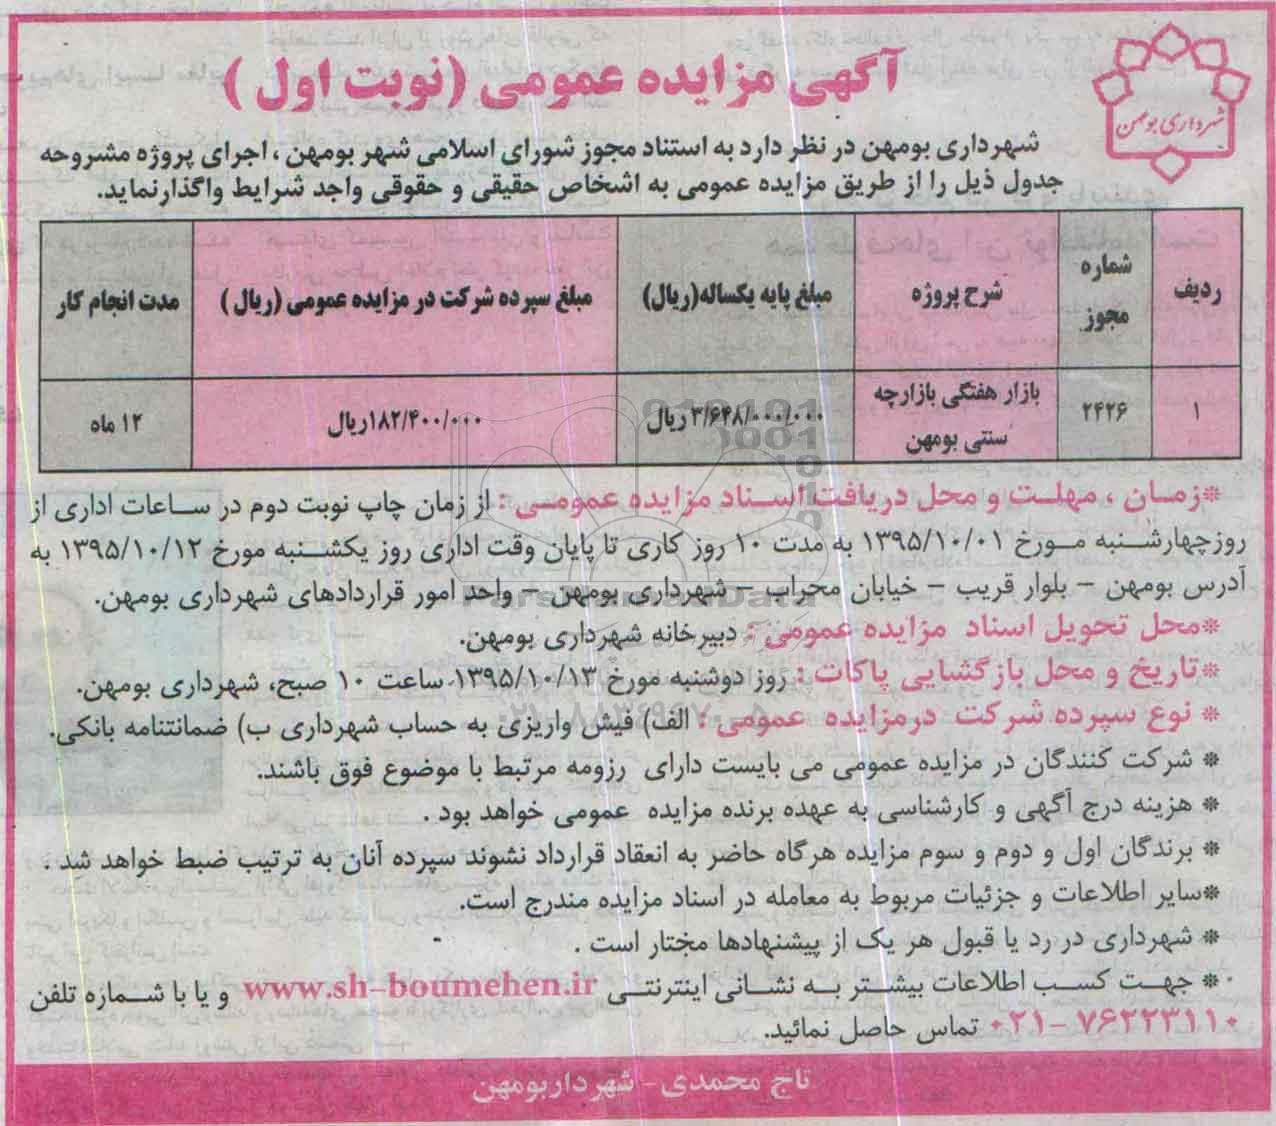 آگهی مزایده عمومی (نوبت اول )
شهرداری بومهن
شهرداری بومهن در نظر دارد به استناد مجوز شورای اسلامی شهر بومهن ، اجرای پروژه مشروحه
جدول ذیل را از طریق مزایده عمومی به اشخاص حقیقی و حقوقی واجد شرایط واگذارنماید.
ردیف
شماره مجوز
شرح پروژه
مبلغ پایه یکساله(ریال)
مبلغ سپرده شرکت در مزایده عمومی (ریال )
مدت انجام کار
۱
۲۴۲۶
بازار هفتگی بازارچه
سنتی بومهن
۳/۶۴۸/۰۰۰/۰۰۰ ریال
۱۸۲/۴۰۰/۰۰۰ریال
۱۲ ماه
*زمـان ، مهلـت و محل دریافت اسـناد مزایده عمومـی : از زمان چاپ نوبت دوم در سـاعات اداری از
روزچهارشـنبه مـورخ ۱۳۹۵/۱۰/۰۱ به مدت ۱۰ روز کاری تا پایان وقت اداری روز یکشـنبه مورخ ۱۳۹۵/۱۰/۱۲ به
آدرس بومهن – بلوار قریب – خیابان محراب – شهرداری بومهن – واحد امور قراردادهای شهرداری بومهن.
*محل تحویل اسناد مزایده عمومی : دبیرخانه شهرداری بومهن.
*تاریخ و محل بازگشایی پاکات : روز دوشنبه مورخ ۱۳۹۵/۱۰/۱۳، ساعت ۱۰ صبح، شهرداری بومهن.
* نوع سپرده شرکت درمزایده عمومی : الف) فیش واریزی به حساب شهرداری ب) ضمانتنامه بانکی.
* شرکت کنندگان در مزایده عمومی می بایست دارای رزومه مرتبط با موضوع فوق باشند.
* هزینه درج آگهی و کارشناسی به عهده برنده مزایده عمومی خواهد بود .
* برندگان اول و دوم و سوم مزایده هرگاه حاضر به انعقاد قرارداد نشوند سپرده آنان به ترتیب ضبط خواهد شد .
*سایر اطلاعات و جزئیات مربوط به معامله در اسناد مزایده مندرج است.
* شهرداری در رد یا قبول هر یک از پیشنهادها مختار است .
* جهـت کسـب اطلاعات بیشـتر بـه نشـانی اینترنتـی www.sh-boumehen.ir و یا با شـماره تلفن
۰۲۱- ۷۶۲۲۳۱۱۰ تماس حاصل نمائید.
تاج محمدی - شهرداربومهن